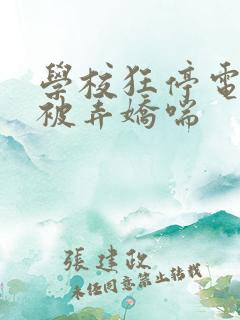 學校狂停電
被弄嬌喘
張建政
未任同意禁止转载